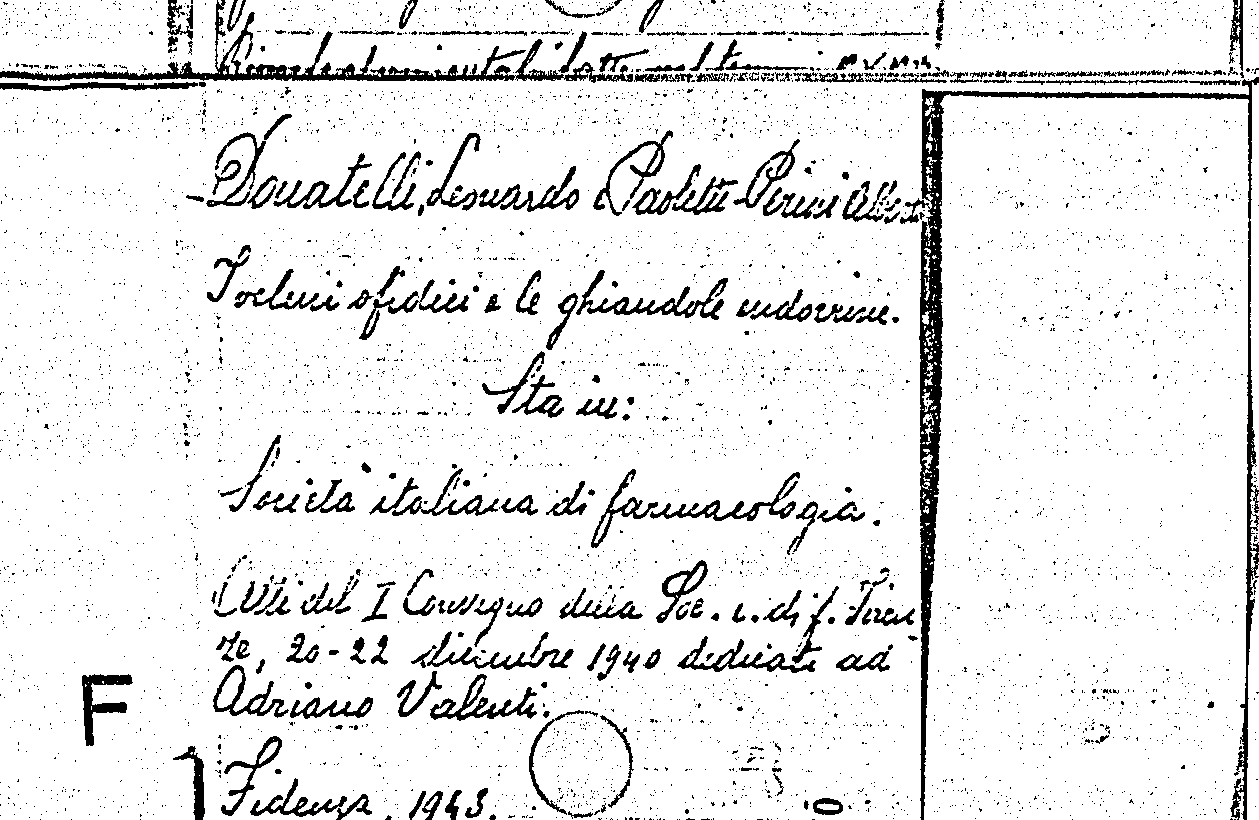 Donatelli, Leonardo e Paoletti-Perini Alberto
I veleni ofidici e le ghiandole endocrine.
Sta in:
Società italiana di farmacologia.
Atti del I Convegno della Soc. i. di f. Firen-
ze, 20-22 dicembre 1940 dedicati ad
Adriano Valenti.
F
Fidenza, 1943.